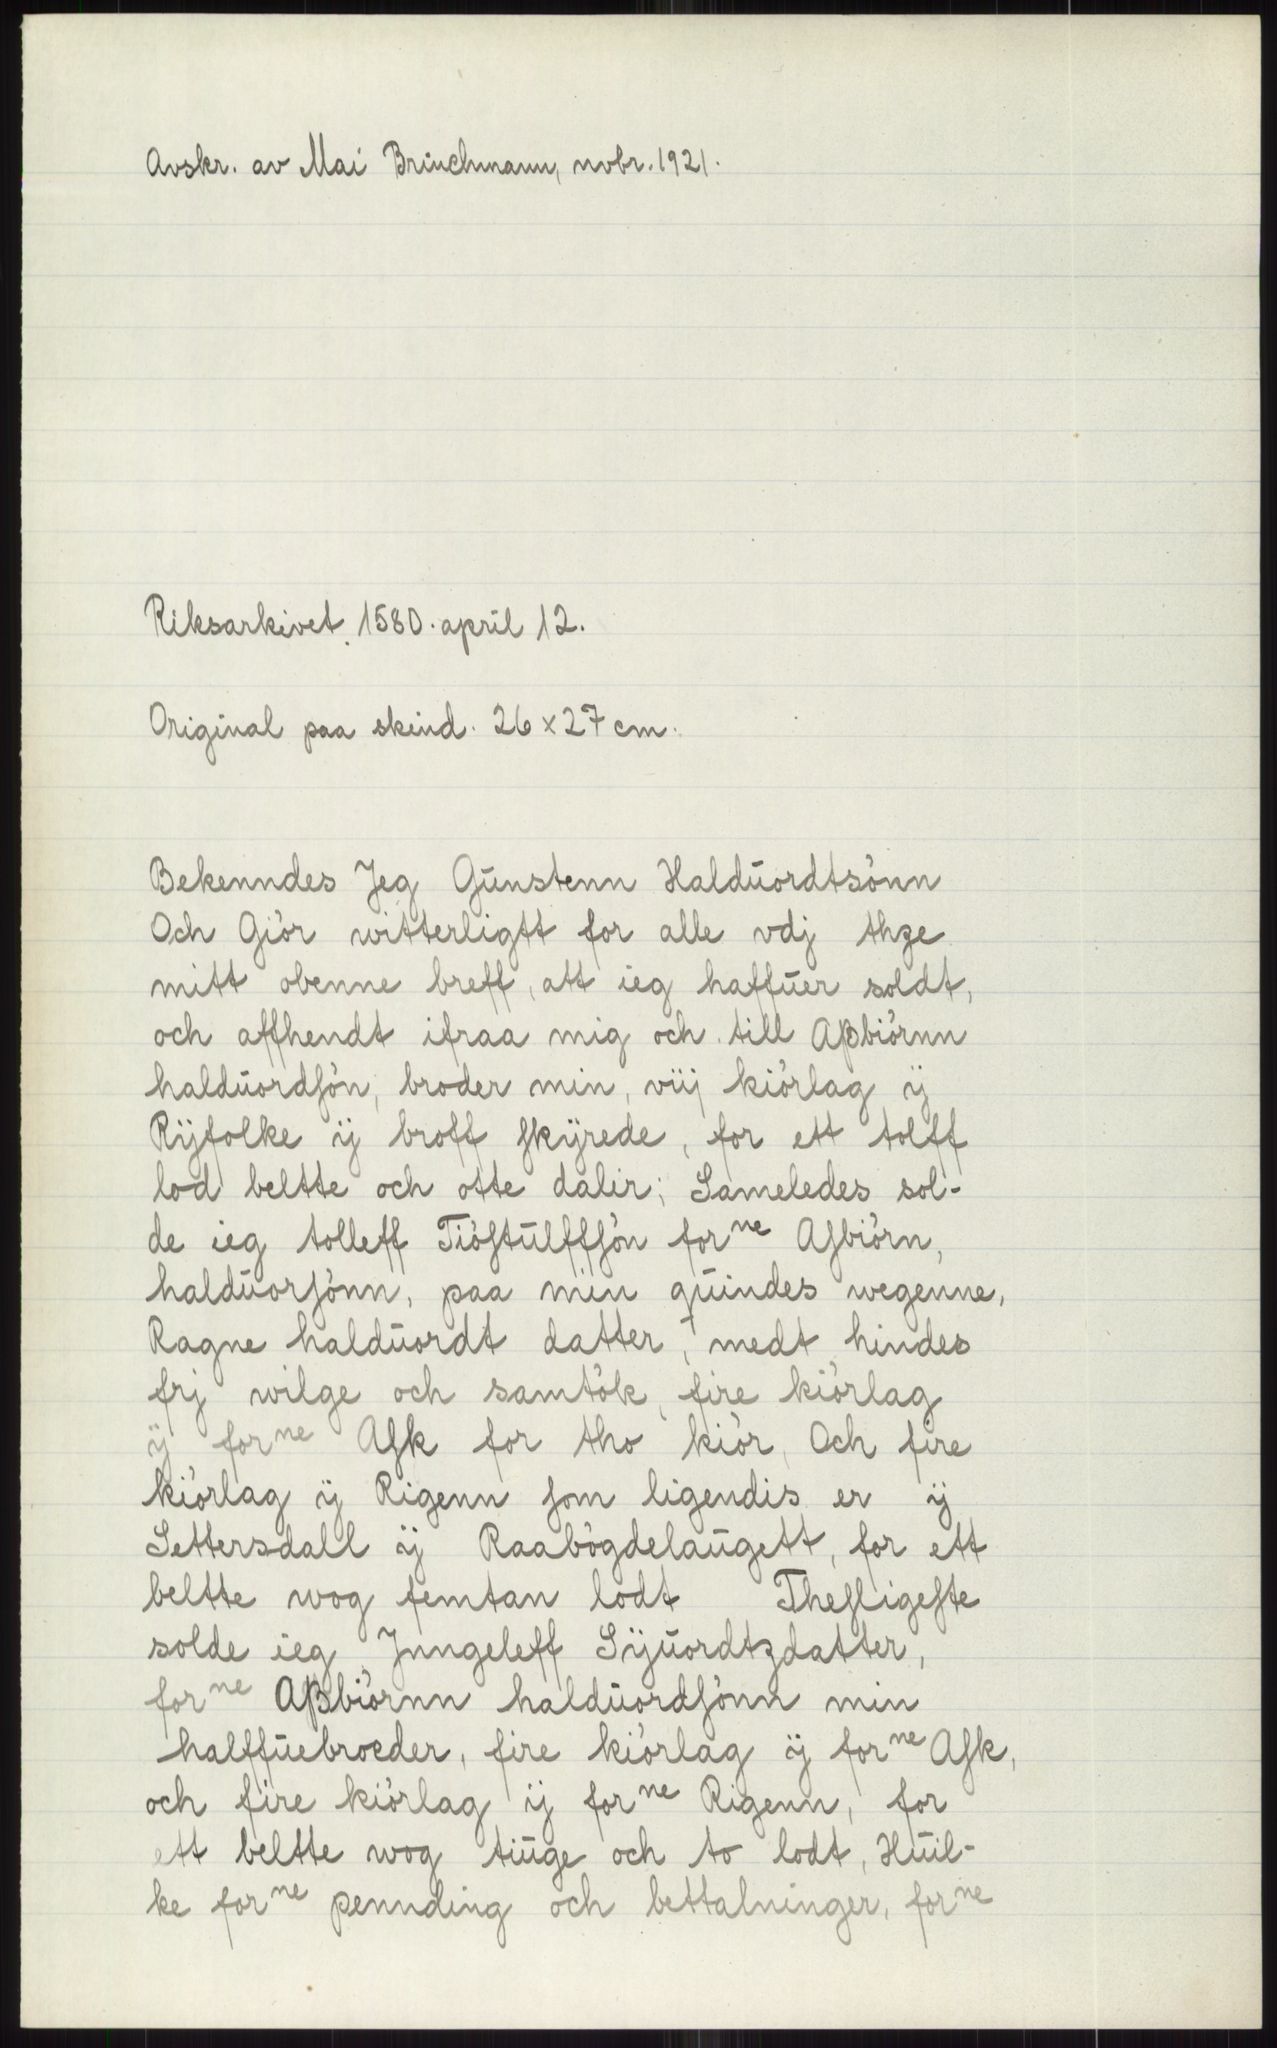 Avskr. av Mai Brinchmann, novbr. 1921.
Riksarkivet 1580. april 12.
Original paa skind. 26 x 27 cm.
Bekenndes Jeg Gūnstenn Haldūordtsönn
Och Giör witterligtt for alle vdj thze
mitt obenne breff, att ieg haffūer soldt,
och affhendt ifraa mig och till Aßbiörnn
haldūordſön, broder min, vüj kiörlag ÿ
Rÿfolke ÿ broff ſkÿrede, for ett tolff
lod beltte och otte dalir; Sameledes sol-
de ieg tolleff Tiöſtūlffſön forⁿᵉ Aſbiörn,
haldūorſönn, paa min qūindes wegenne,
Ragne haldūordt datter, medt hindes
frj wilge och samtök, fire kiörlag
ÿ forⁿᵉ Aſk for tho kiör, Och fire
kiörlag ÿ Rigenn ſom ligendis er ÿ
Settersdall ÿ Raabögdelaūgett, for ett
beltte wog femtan lodt Theſligeſte
solde ieg Jnngeleff Sÿūordtzdatter,
forⁿᵉ Aßbiörnn haldūordſönn min
halffūebroeder, fire kiörlag ÿ forⁿᵉ Aſk,
och fire kiörlag ÿ forⁿᵉ Rigenn, for
ett beltte wog tiūge och to lodt, Hūil-
ke forⁿᵉ pennding och bettalninger, forⁿᵉ